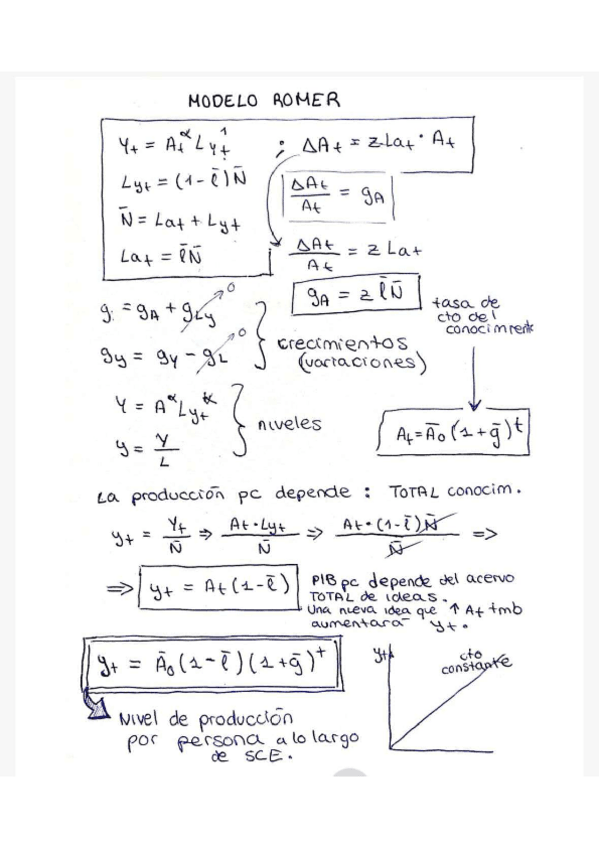 MODELO ROMER
Yt = At^α Lyt^1 ; ΔAt = z·Lat · At
Lyt = (1 - l̄) N̄
ΔAt/At = gA
N̄ = Lat + Lyt
Lat = l̄N̄
ΔAt/At = z Lat
gA = z l̄N̄
tasa de
cto del
conocimiento
g = gA + gLy → 0
gy = gY - gL → 0
crecimientos
(variaciones)
Y = A^α Lyt^α
y = Y/L
niveles
At = Ā0 (1 + ḡ)^t
La producción pc depende : TOTAL conocim.
yt = Yt/N̄ ⇒ At·Lyt/N̄ ⇒ At·(1-l̄)N̄/N̄ =>
=> yt = At (1 - l̄)
PIB pc depende del acervo
TOTAL de ideas.
Una nueva idea que ↑ At tmb
aumentará yt.
yt = Ā0 (1 - l̄) (1 + ḡ)^t
yt
cto
constante
Nivel de producción
por persona a lo largo
de SCE.